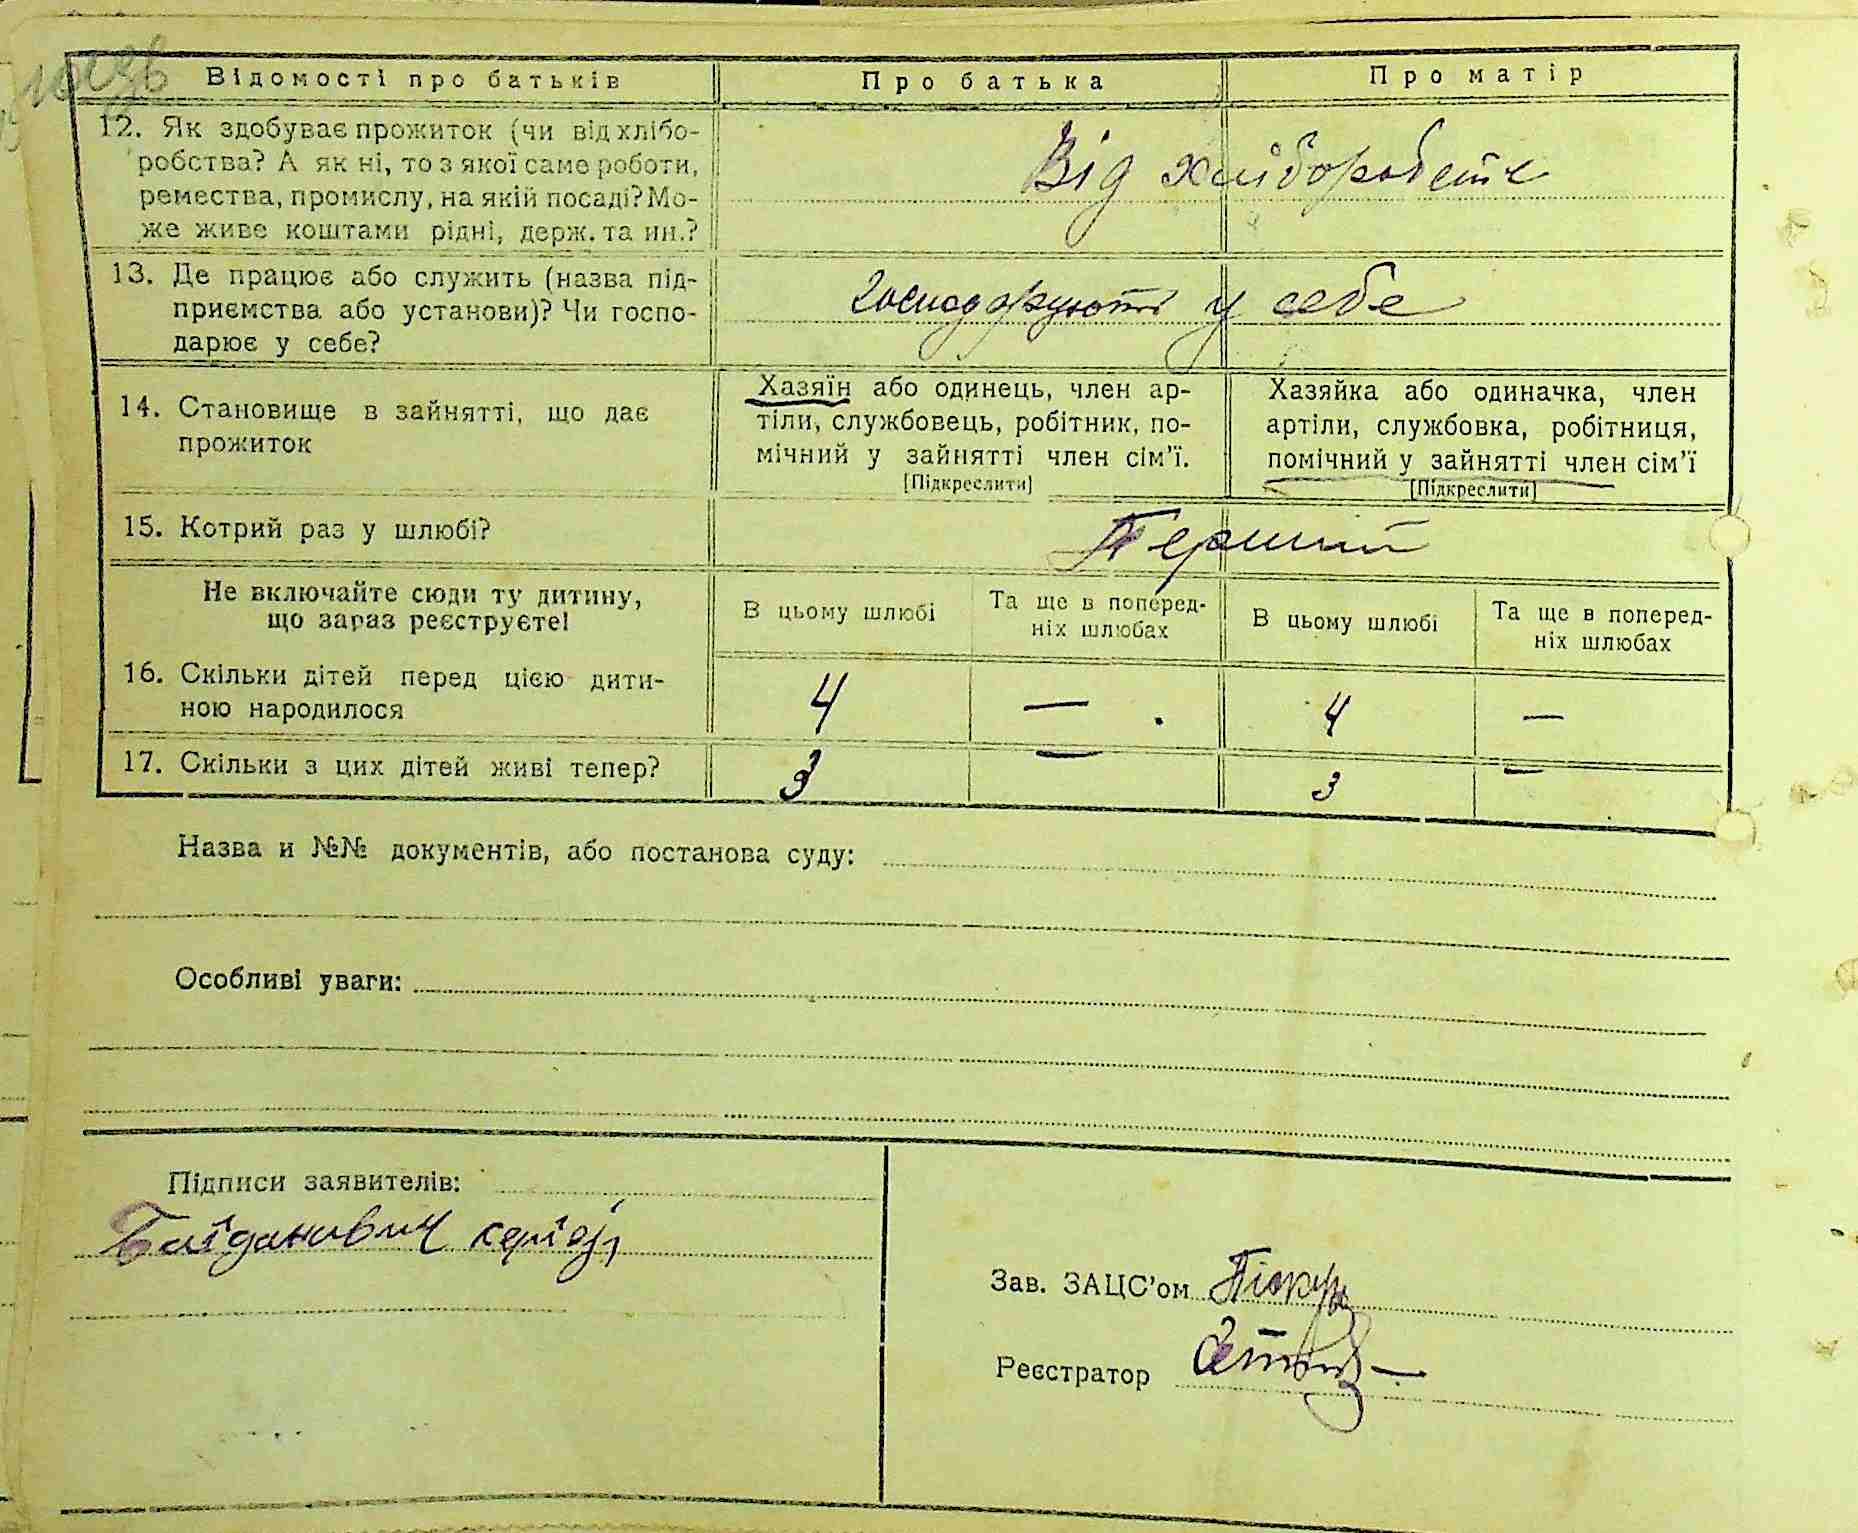 Відомості про батьків Про батька Про матір
12. Як здобуває прожиток (чи від хлібо-
робства? А як ні, то з якої саме роботи,
ремества, промислу, на якій посаді? Мо-
же живе коштами рідні, держ. та ин.?
Від хліборобств
13. Де працює або служить (назва під-
приємства або установи)? Чи госпо-
дарює у себе?
господарюють у себе
14. Становище в зайнятті, що дає
прожиток
Хазяїн або одинець, член ар-
тіли, службовець, робітник, по-
мічний у зайнятті член сім’ї.
[Підкреслити]
Хазяйка або одиначка, член
артіли, службовка, робітниця,
помічний у зайнятті член сім’ї
[Підкреслити]
15. Котрий раз у шлюбі? Перший
Не включайте сюди ту дитину,
що зараз реєструєте!
В цьому шлюбі
Та ще в поперед-
ніх шлюбах
В цьому шлюбі
Та ще в поперед-
ніх шлюбах
16. Скільки дітей перед цією дити-
ною народилося
4 — 4 —
17. Скільки з цих дітей живі тепер? 3 — 3 —
Назва и №№ документів, або постанова суду:
Особливі уваги:
Підписи заявителів:
Багданович
Зав. ЗАЦС’ом
Реєстратор